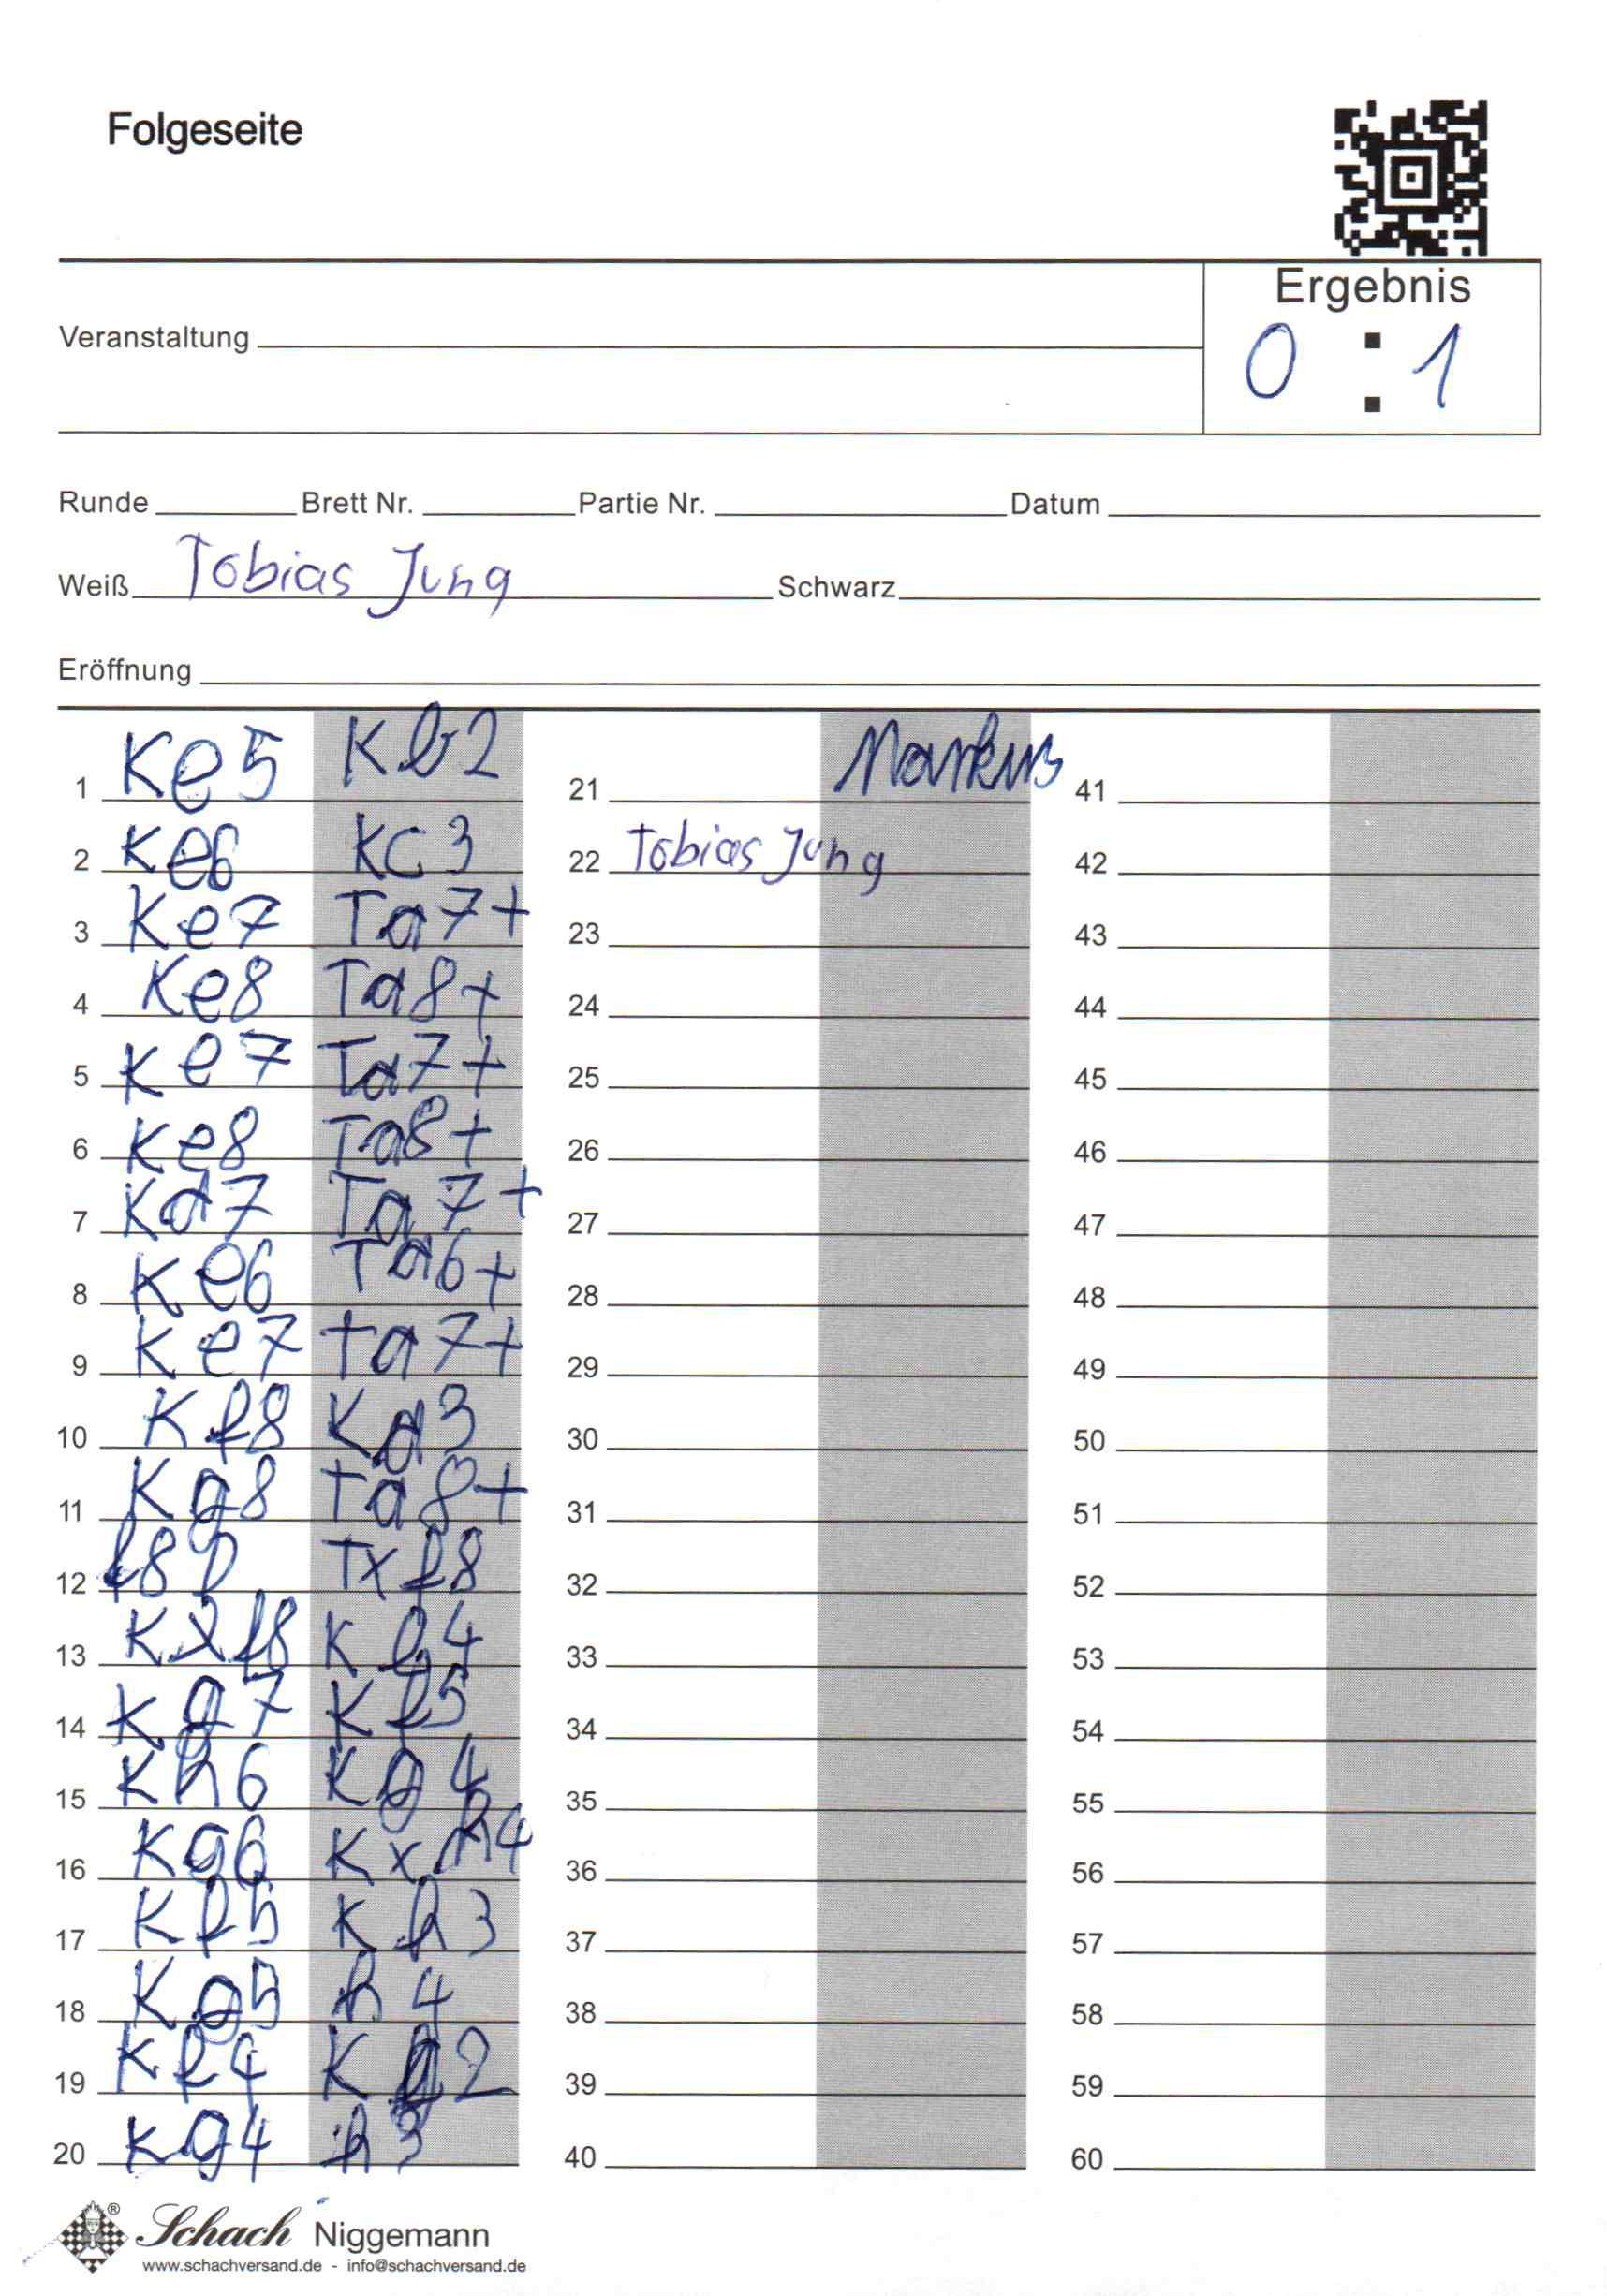 Folgeseite
Ergebnis
Veranstaltung 0 : 1
Runde Brett Nr. Partie Nr. Datum
Weiß Tobias Jung Schwarz
Eröffnung
1 Ke5 Kb2 21 Markus 41
2 Ke6 Kc3 22 Tobias Jung 42
3 Ke7 Ta7+ 23 43
4 Ke8 Ta8+ 24 44
5 Ke7 Ta7+ 25 45
6 Ke8 Ta8+ 26 46
7 Kd7 Ta7+ 27 47
8 Ke6 Ta6+ 28 48
9 Ke7 ta7+ 29 49
10 Kf8 Kd3 30 50
11 Kg8 Ta8+ 31 51
12 f8D Txf8 32 52
13 Kxf8 K 4 33 53
14 Kg7 Kf5 34 54
15 Kh6 Kg4 35 55
16 Kg6 Kxh4 36 56
17 Kf5 Kh3 37 57
18 Kg5 h4 38 58
19 Kf4 Kg2 39 59
20 Kg4 h3 40 60
Schach Niggemann
www.schachversand.de - info@schachversand.de